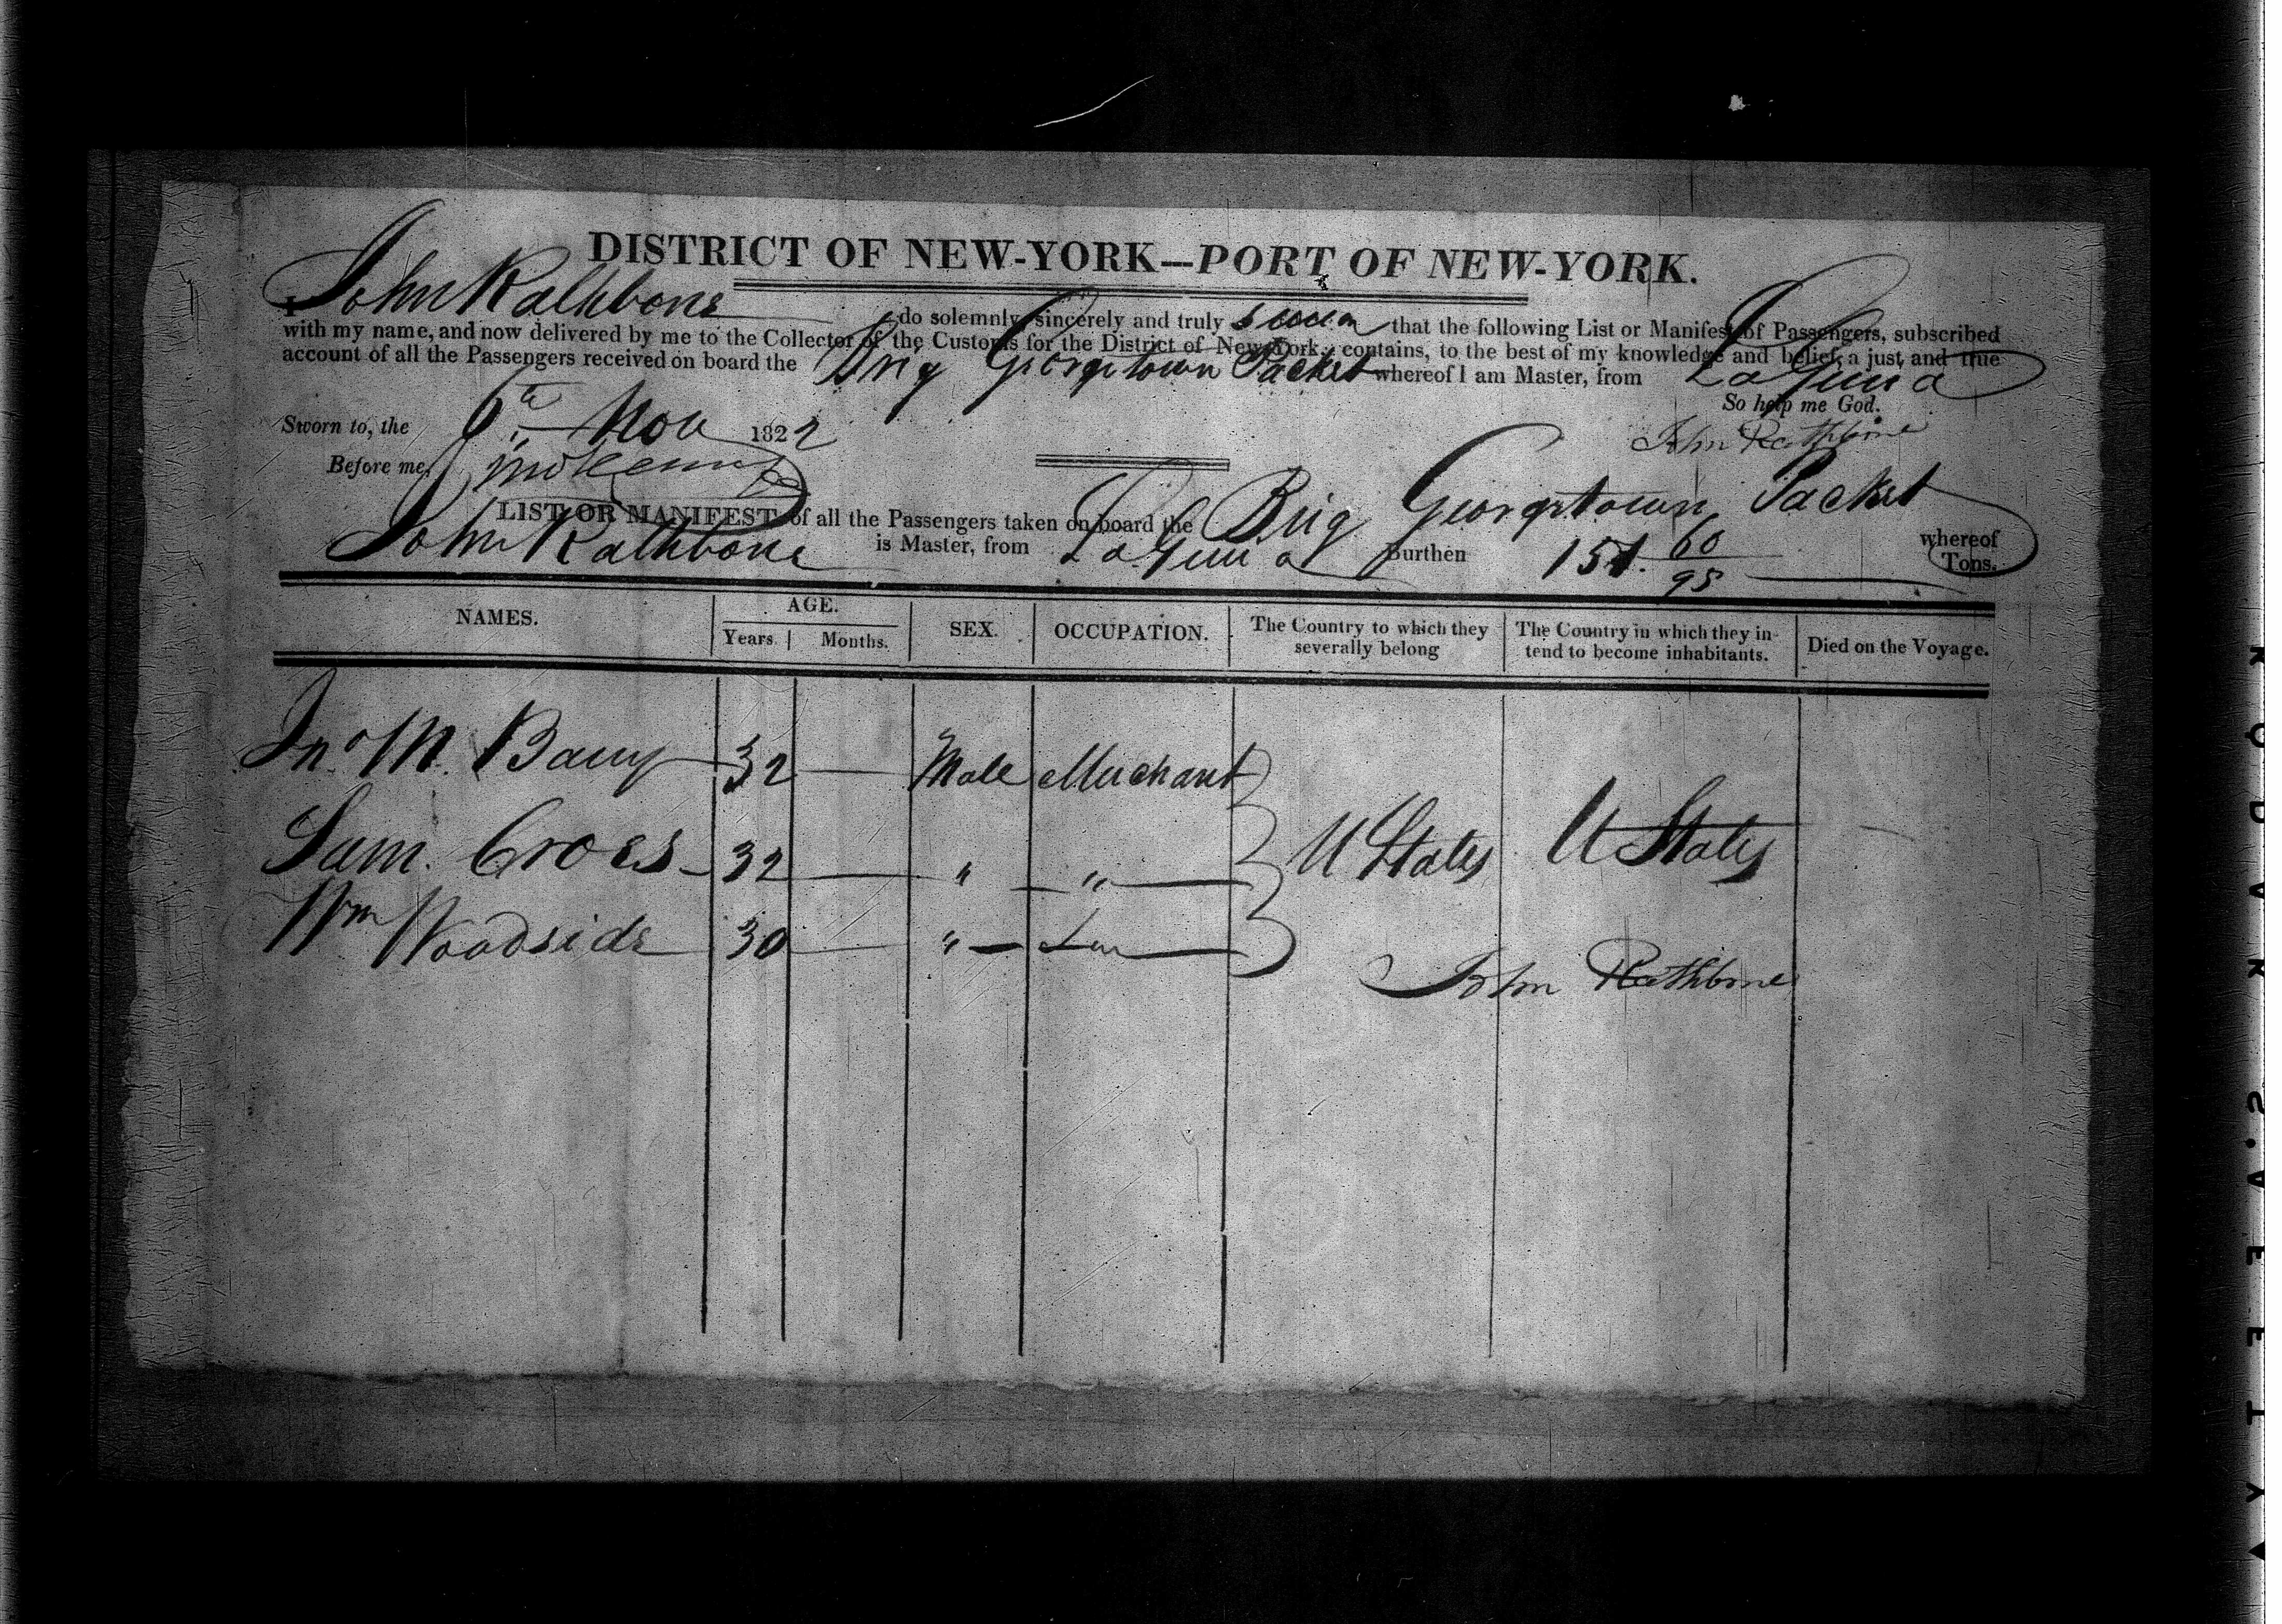 DISTRICT OF NEW-YORK—PORT OF NEW-YORK.
I John Rathbone do solemnly, sincerely and truly swear that the following List or Manifest of Passengers, subscribed
with my name, and now delivered by me to the Collector of the Customs for the District of New-York, contains, to the best of my knowledge and belief, a just and true
account of all the Passengers received on board the Brig Georgetown Packet whereof I am Master, from LaGuira
So help me God.
Sworn to, the 6th Nov 1822 John Rathbone
Before me,
LIST OR MANIFEST of all the Passengers taken on board the Brig Georgetown Packet whereof
John Rathbone is Master, from LaGuira Burthen 151. 60/95 Tons.
NAMES. AGE. SEX. OCCUPATION. The Country to which they severally belong The Country in which they intend to become inhabitants. Died on the Voyage.
Years. Months.
Jno M. Barry 32 Male Merchant
Sam. Croes 32 " " U States U States
Wm Woodside 30 "
John Rathbone
KODAK S.AFETY